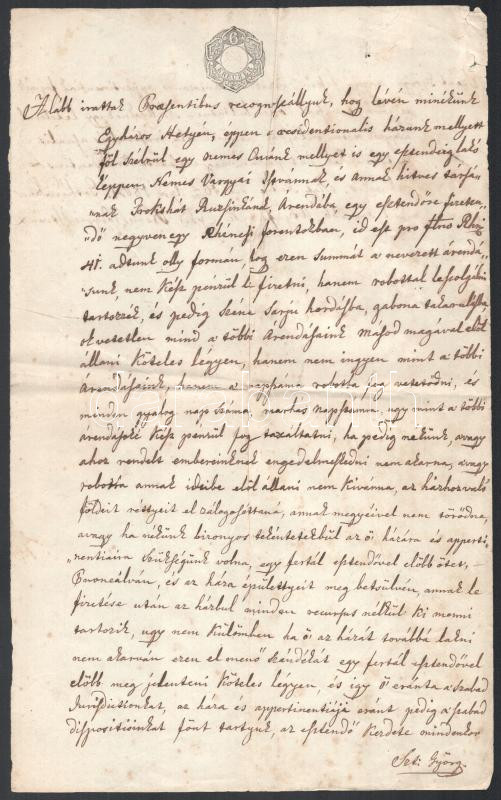 6
Alább irattak Præsentibus recognoscállyuk, hogy lévén minékünk
Egyházos Hetyén, éppen residentionalis házunk mellyett
egy nemes Curiánk mellyet is egy esztendeig lakó
képpen Nemes Vargyai Istvánnak és annak hitves társá-
nak Árendába egy esztendőre fizeten-
dő negyven egy Rhénesi forentokban, id est pro Rhn
41. adtunk olly formán hogy ezen summát a nevezett árendá-
sunk, nem kész pénzül fizetni, hanem robottal leszolgálni
tartozzék, és pedig Széna Sarju hordásba, gabona takarulásba,
mind a többi Árendásaink másod magával elöl
állani köteles légyen, hanem nem ingyen mint a többi
Árendásaink, hanem a napszáma robotba fog vetetődni, és
minden gyalog nap száma, marhás napszáma, ugy mint a többi
árendásoké kész pénzül fog taxáltatni, ha pedig nékünk, avagy
ahoz rendelt embereinknek engedelmeskedni nem akarna, avagy
robotra annak ideibe elöl állani nem kívánna, az házhoz való
földeit réttyeit el zálogosíttana, annak megyéivel nem törödne,
avagy ha nékünk bizonyos tekéntetekbül az ő házára és apperti-
nentiáira szükségünk volna, egy fertál esztendővel előbb ötet,
és az háza épülettyeit meg betsülvén, annak le
fizetése után az házbul minden recursus nélkül ki menni
tartozik, ugy nem külömben ha ő az házát továbbá lakni
nem akarván ezen el menő szándékát egy fertál esztendővel
előbb meg jelenteni köteles légyen, és így ő eránta a szabad
Jurisdictionkat, az háza és appertinentiája eránt pedig a szabad
dispositióinkat fönt tartyuk, az esztendő kezdete mindenkor
Szt: György